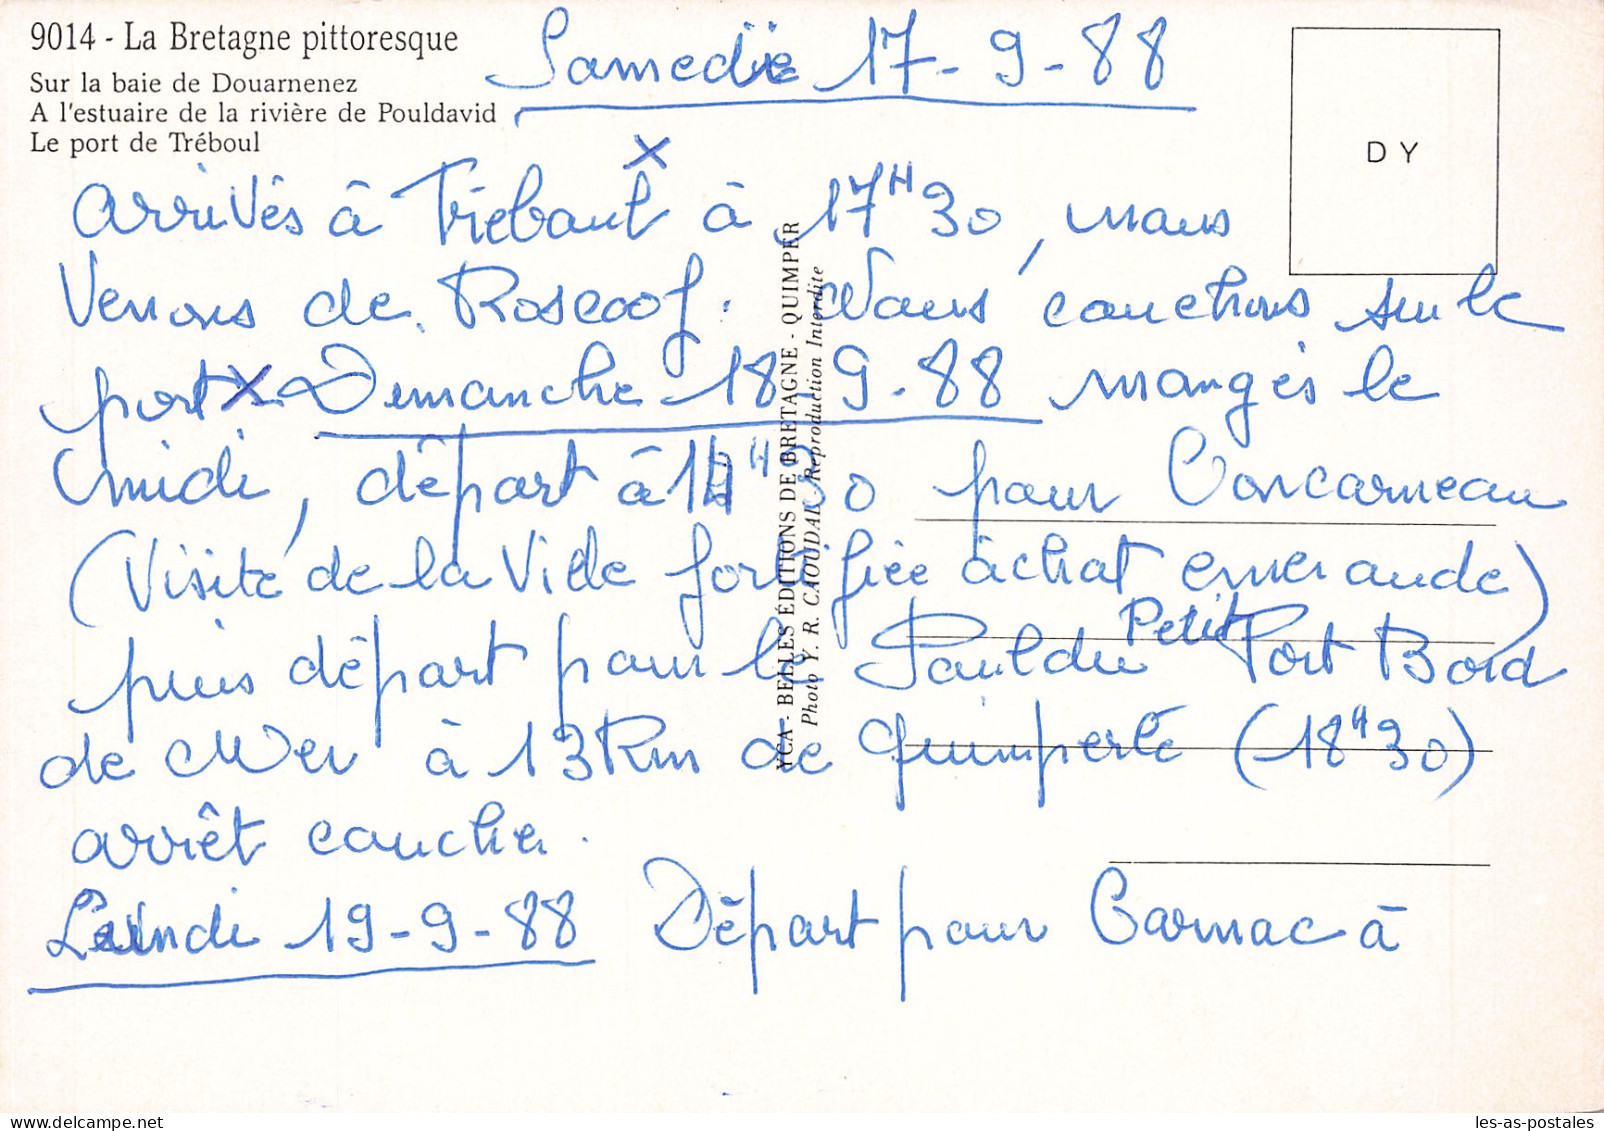 9014 - La Bretagne pittoresque
Sur la baie de Douarnenez
A l'estuaire de la rivière de Pouldavid
Le port de Tréboul
Samedi 17-9-88
DY
x
arrivés à Trebout à 17H30, nous
Venons de Roscoof. Nous couchons sur le
port x. Dimanche 18-9-88 mangés le
midi, départ à 14H30 pour Concarneau
(Visite de la Ville fortifiée achat emeraude)
puis départ pour le Pouldu Petit Port Bord
de Mer à 13 Km de Quimperlé (18H30)
arrêt coucher.
Lundi 19-9-88 Départ pour Carnac à
YCA - BELLES ÉDITIONS DE BRETAGNE - QUIMPER
Photo Y. R. CAOUDAL Reproduction Interdite
les-as-postales